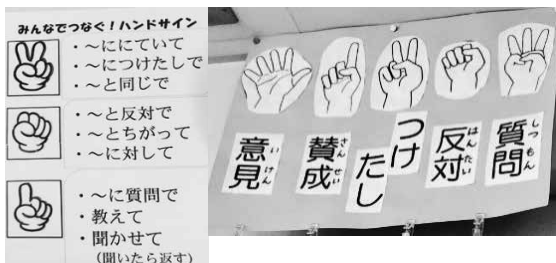 みんなでつなぐ！ハンドサイン
・～ににていて
・～につけたしで
・～と同じで
・～と反対で
・～とちがって
・～に対して
・～に質問で
・教えて
・聞かせて
（聞いたら返す）
意見
いけん
賛成
さんせい
つけ
たし
反対
はんたい
質問
しつもん